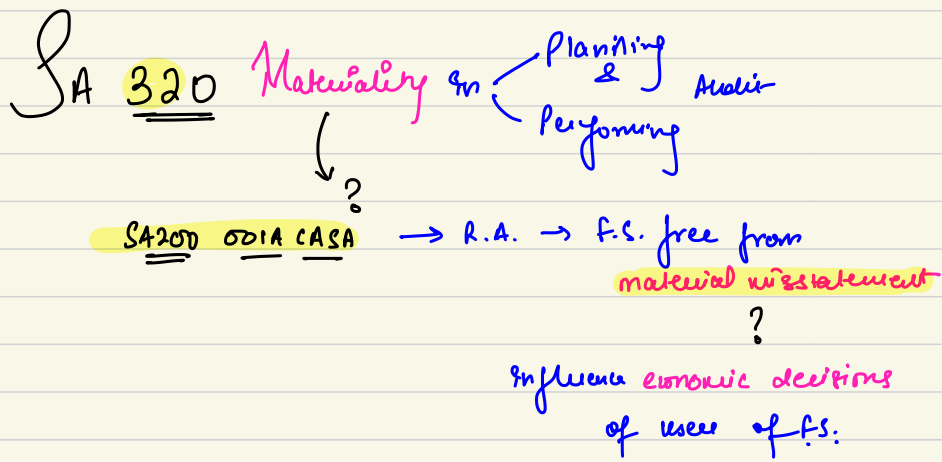 SA 320 Materiality in Planning & Performing Audit
?
SA200 OOIA CASA → R.A. → F.S. free from
material misstatement
?
Influence economic decisions
of users of F.S.